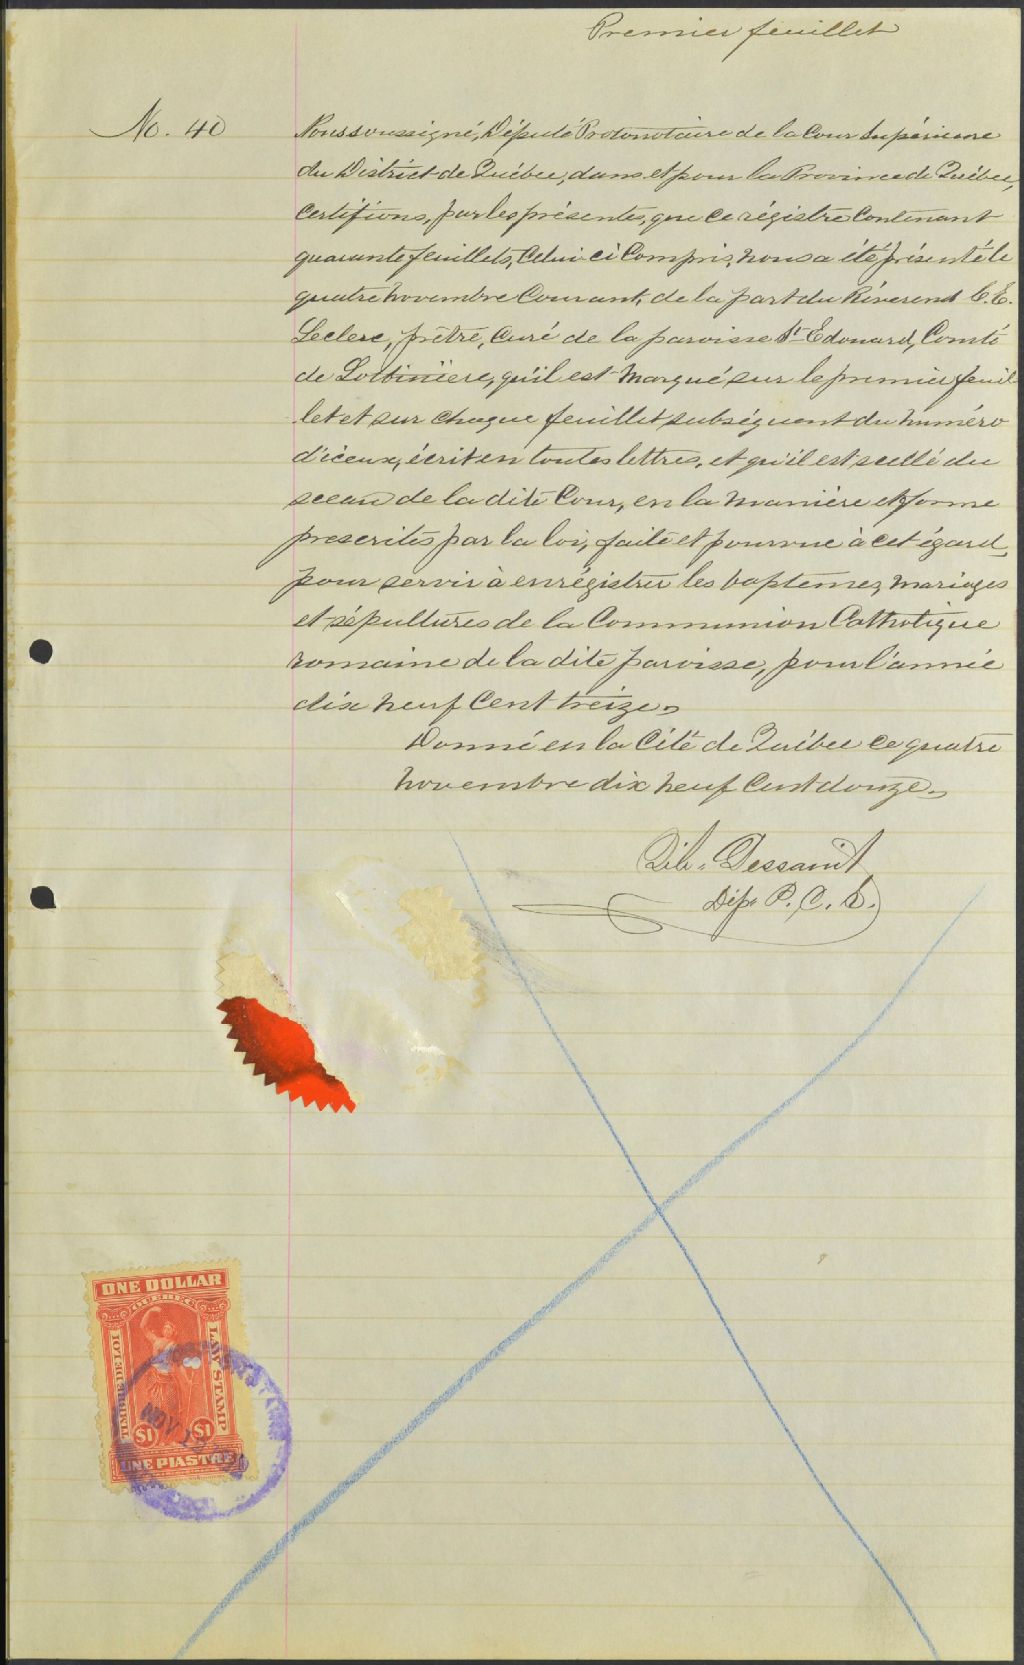 Premier feuillet
No. 40
Nous soussigné, Député Protonotaire de la Cour Supérieure
du District de Québec, dans et pour la Province de Québec,
certifions, par les présentes, que ce régistre contenant
quarante feuillets, celui-ci compris, nous a été présenté le
quatre novembre courant, de la part du Révérend C. E.
Leclerc, prêtre, curé de la paroisse St Edouard, Comté
de Lotbinière, qu'il est marqué sur le premier feuil
let et sur chaque feuillet subséquent du numéro
d'iceux, écrit en toutes lettres, et qu'il est scellé du
sceau de la dite Cour, en la manière et forme
prescrites par la loi, faite et pourvue à cet égard,
pour servir à enrégistrer les baptêmes, mariages
et sépultures de la Communion Catholique
romaine de la dite paroisse, pour l'année
dix neuf cent treize.
Donné en la Cité de Québec ce quatre
novembre dix neuf cent douze.
Dép. P. C. S.
ONE DOLLAR
QUEBEC
TIMBRE DE LOI
LAW STAMP
$1 $1
UNE PIASTRE
NOV